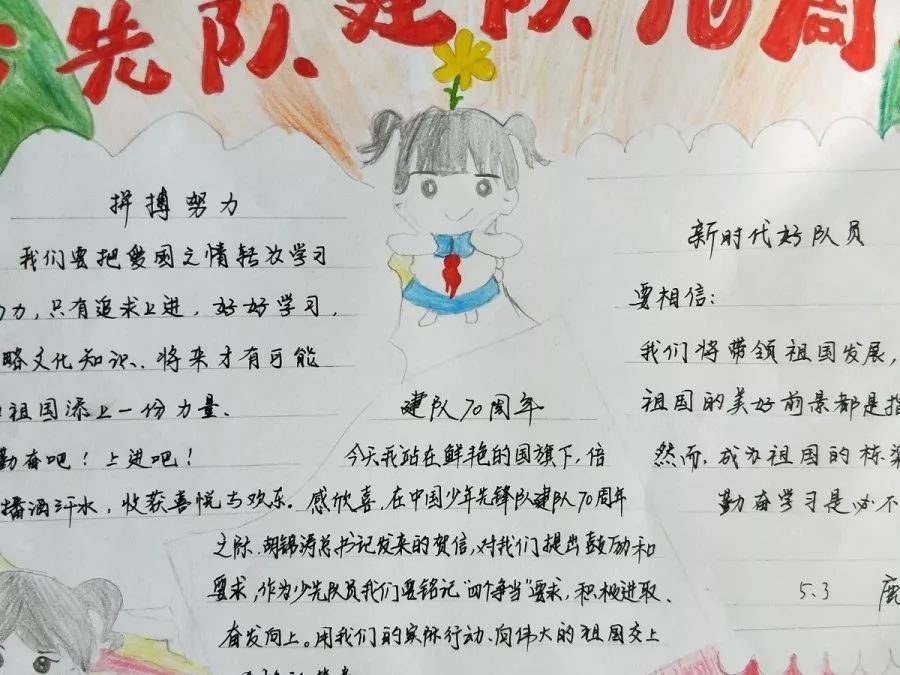 先队建队70周
拼搏努力
我们要把爱国之情转效学习
力,只有追求上进,好好学习,
略文化知识、将来才有可能
祖国添上一份力量.
勤奋吧!上进吧!
播洒汗水,收获喜悦与欢乐.
建队70周年
今天我站在鲜艳的国旗下,倍
感欣喜.在中国少年先锋队建队70周年
之际.胡锦涛总书记发来的贺信,对我们提出鼓励和
要求,作为少先队员我们要铭记"四个争当"要求,积极进取、
奋发向上.用我们的实际行动、向伟大的祖国交上
新时代好队员
要相信:
我们将带领祖国发展,
祖国的美好前景都是指
然而,成为祖国的栋梁
勤奋学习是必不
5.3 鹿